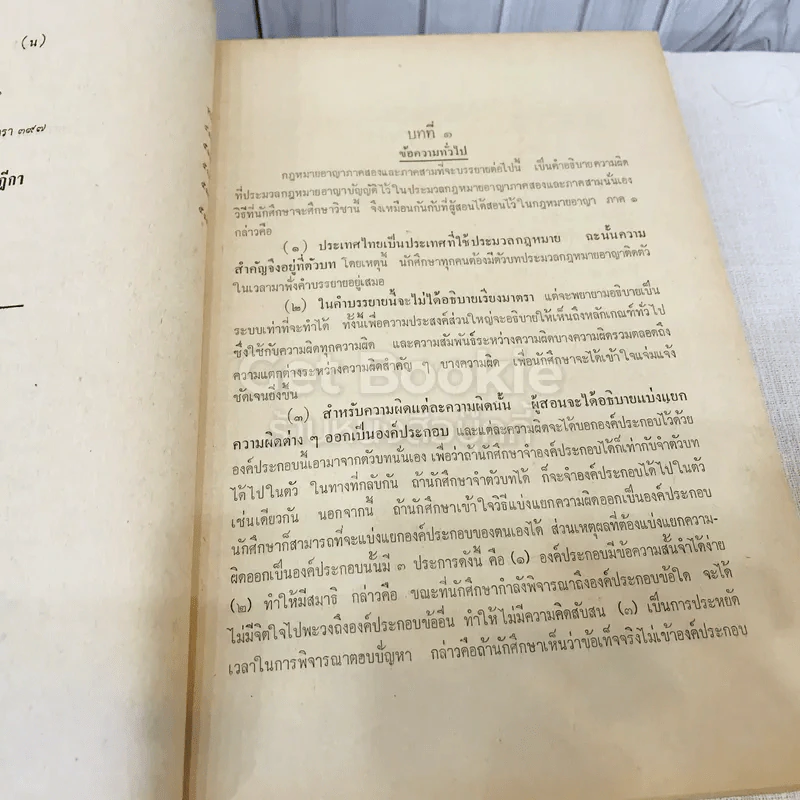 (น)
มาตรา ๓๙๗
ฎีกา
บทที่ ๑
ข้อความทั่วไป
กฎหมายอาญาภาคสองและภาคสามที่จะบรรยายต่อไปนี้ เป็นคำอธิบายความผิด
ที่ประมวลกฎหมายอาญาบัญญัติไว้ในประมวลกฎหมายอาญาภาคสองและภาคสามนั่นเอง
วิธีที่นักศึกษาจะศึกษาวิชานี้ จึงเหมือนกันกับที่ผู้สอนได้สอนไว้ในกฎหมายอาญา ภาค ๑
กล่าวคือ
(๑) ประเทศไทยเป็นประเทศที่ใช้ประมวลกฎหมาย ฉะนั้นความ
สำคัญจึงอยู่ที่ตัวบท โดยเหตุนี้ นักศึกษาทุกคนต้องมีตัวบทประมวลกฎหมายอาญาติดตัว
ในเวลามาฟังคำบรรยายอยู่เสมอ
(๒) ในคำบรรยายนี้จะไม่ได้อธิบายเรียงมาตรา แต่จะพยายามอธิบายเป็น
ระบบเท่าที่จะทำได้ ทั้งนี้เพื่อความประสงค์ส่วนใหญ่จะอธิบายให้เห็นถึงหลักเกณฑ์ทั่วไป
ซึ่งใช้กับความผิดทุกความผิด และความสัมพันธ์ระหว่างความผิดบางความผิดรวมตลอดถึง
ความแตกต่างระหว่างความผิดสำคัญ ๆ บางความผิด เพื่อนักศึกษาจะได้เข้าใจแจ่มแจ้ง
ชัดเจนยิ่งขึ้น
Get Bookie
(๓) สำหรับความผิดแต่ละความผิดนั้น ผู้สอนจะได้อธิบายแบ่งแยก
ความผิดต่าง ๆ ออกเป็นองค์ประกอบ และแต่ละความผิดจะได้บอกองค์ประกอบไว้ด้วย
องค์ประกอบนี้เอามาจากตัวบทนั่นเอง เพื่อว่าถ้านักศึกษาจำองค์ประกอบได้ก็เท่ากับจำตัวบท
ได้ไปในตัว ในทางที่กลับกัน ถ้านักศึกษาจำตัวบทได้ ก็จะจำองค์ประกอบได้ไปในตัว
เช่นเดียวกัน นอกจากนี้ ถ้านักศึกษาเข้าใจวิธีแบ่งแยกความผิดออกเป็นองค์ประกอบ
นักศึกษาก็สามารถที่จะแบ่งแยกองค์ประกอบของตนเองได้ ส่วนเหตุผลที่ต้องแบ่งแยกความ-
ผิดออกเป็นองค์ประกอบนั้นมี ๓ ประการดังนี้ คือ (๑) องค์ประกอบมีข้อความสั้นจำได้ง่าย
(๒) ทำให้มีสมาธิ กล่าวคือ ขณะที่นักศึกษากำลังพิจารณาถึงองค์ประกอบข้อใด จะได้
ไม่มีจิตใจไปพะวงถึงองค์ประกอบข้ออื่น ทำให้ไม่มีความคิดสับสน (๓) เป็นการประหยัด
เวลาในการพิจารณาตอบปัญหา กล่าวคือถ้านักศึกษาเห็นว่าข้อเท็จจริงไม่เข้าองค์ประกอบ